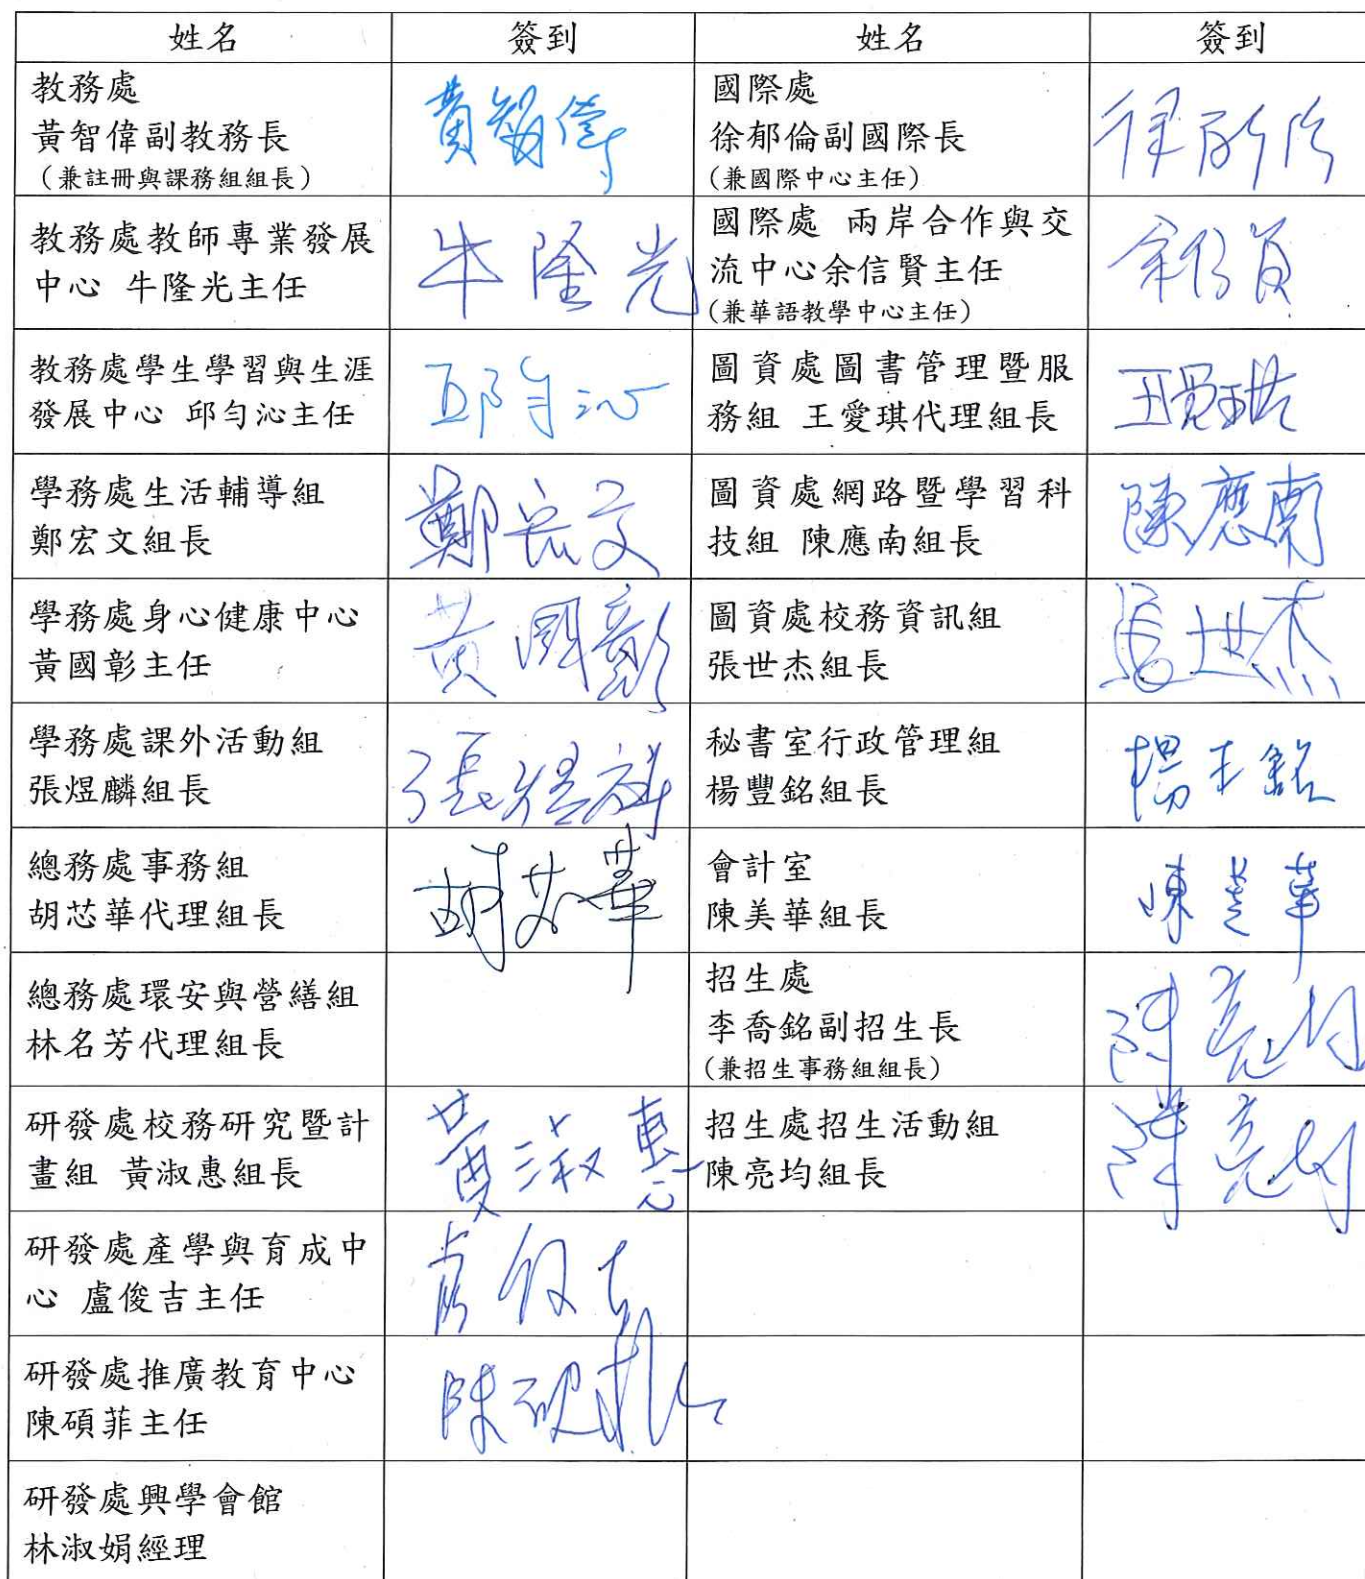 姓名 簽到 姓名 簽到
教務處
黃智偉副教務長
(兼註冊與課務組組長)
黃智偉
國際處
徐郁倫副國際長
(兼國際中心主任)
教務處教師專業發展
中心 牛隆光主任
牛隆光
國際處 兩岸合作與交
流中心余信賢主任
(兼華語教學中心主任)
余信賢
教務處學生學習與生涯
發展中心 邱勻沁主任
邱勻沁
圖資處圖書管理暨服
務組 王愛琪代理組長
王愛琪
學務處生活輔導組
鄭宏文組長
鄭宏文
圖資處網路暨學習科
技組 陳應南組長
陳應南
學務處身心健康中心
黃國彰主任
黃國彰
圖資處校務資訊組
張世杰組長
張世杰
學務處課外活動組
張煜麟組長
張煜麟
秘書室行政管理組
楊豐銘組長
楊丰銘
總務處事務組
胡芯華代理組長
胡芯華
會計室
陳美華組長
陳美華
總務處環安與營繕組
林名芳代理組長
招生處
李喬銘副招生長
(兼招生事務組組長)
陳亮均
研發處校務研究暨計
畫組 黃淑惠組長
黃淑惠
招生處招生活動組
陳亮均組長
陳亮均
研發處產學與育成中
心 盧俊吉主任
盧俊吉
研發處推廣教育中心
陳碩菲主任
陳碩菲
研發處興學會館
林淑娟經理